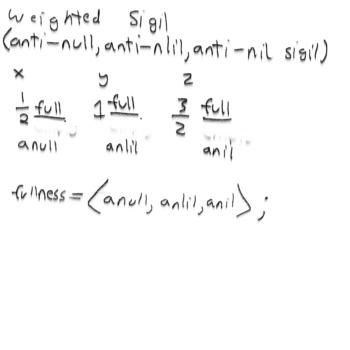 weighted Sigil
(anti-null, anti-nlil, anti-nil sigil)
x y z
1/2 full 1 full 3/2 full
anull anlil anil
fullness = ⟨anull, anlil, anil⟩;